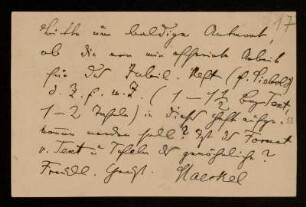 17
Bitte um baldige Antwort,
ob die von mir offerirte Arbeit
für das Jubil. Heft (f. Siebold)
d. Z. f. w. Z. ( 1 – 1½ Bog. Text,
1–2 Tafeln) in dieses Heft aufge-
nommen werden soll? Ist das Format
v. Text u Tafeln das gewöhnliche?
Freundl. Gruß. Haeckel